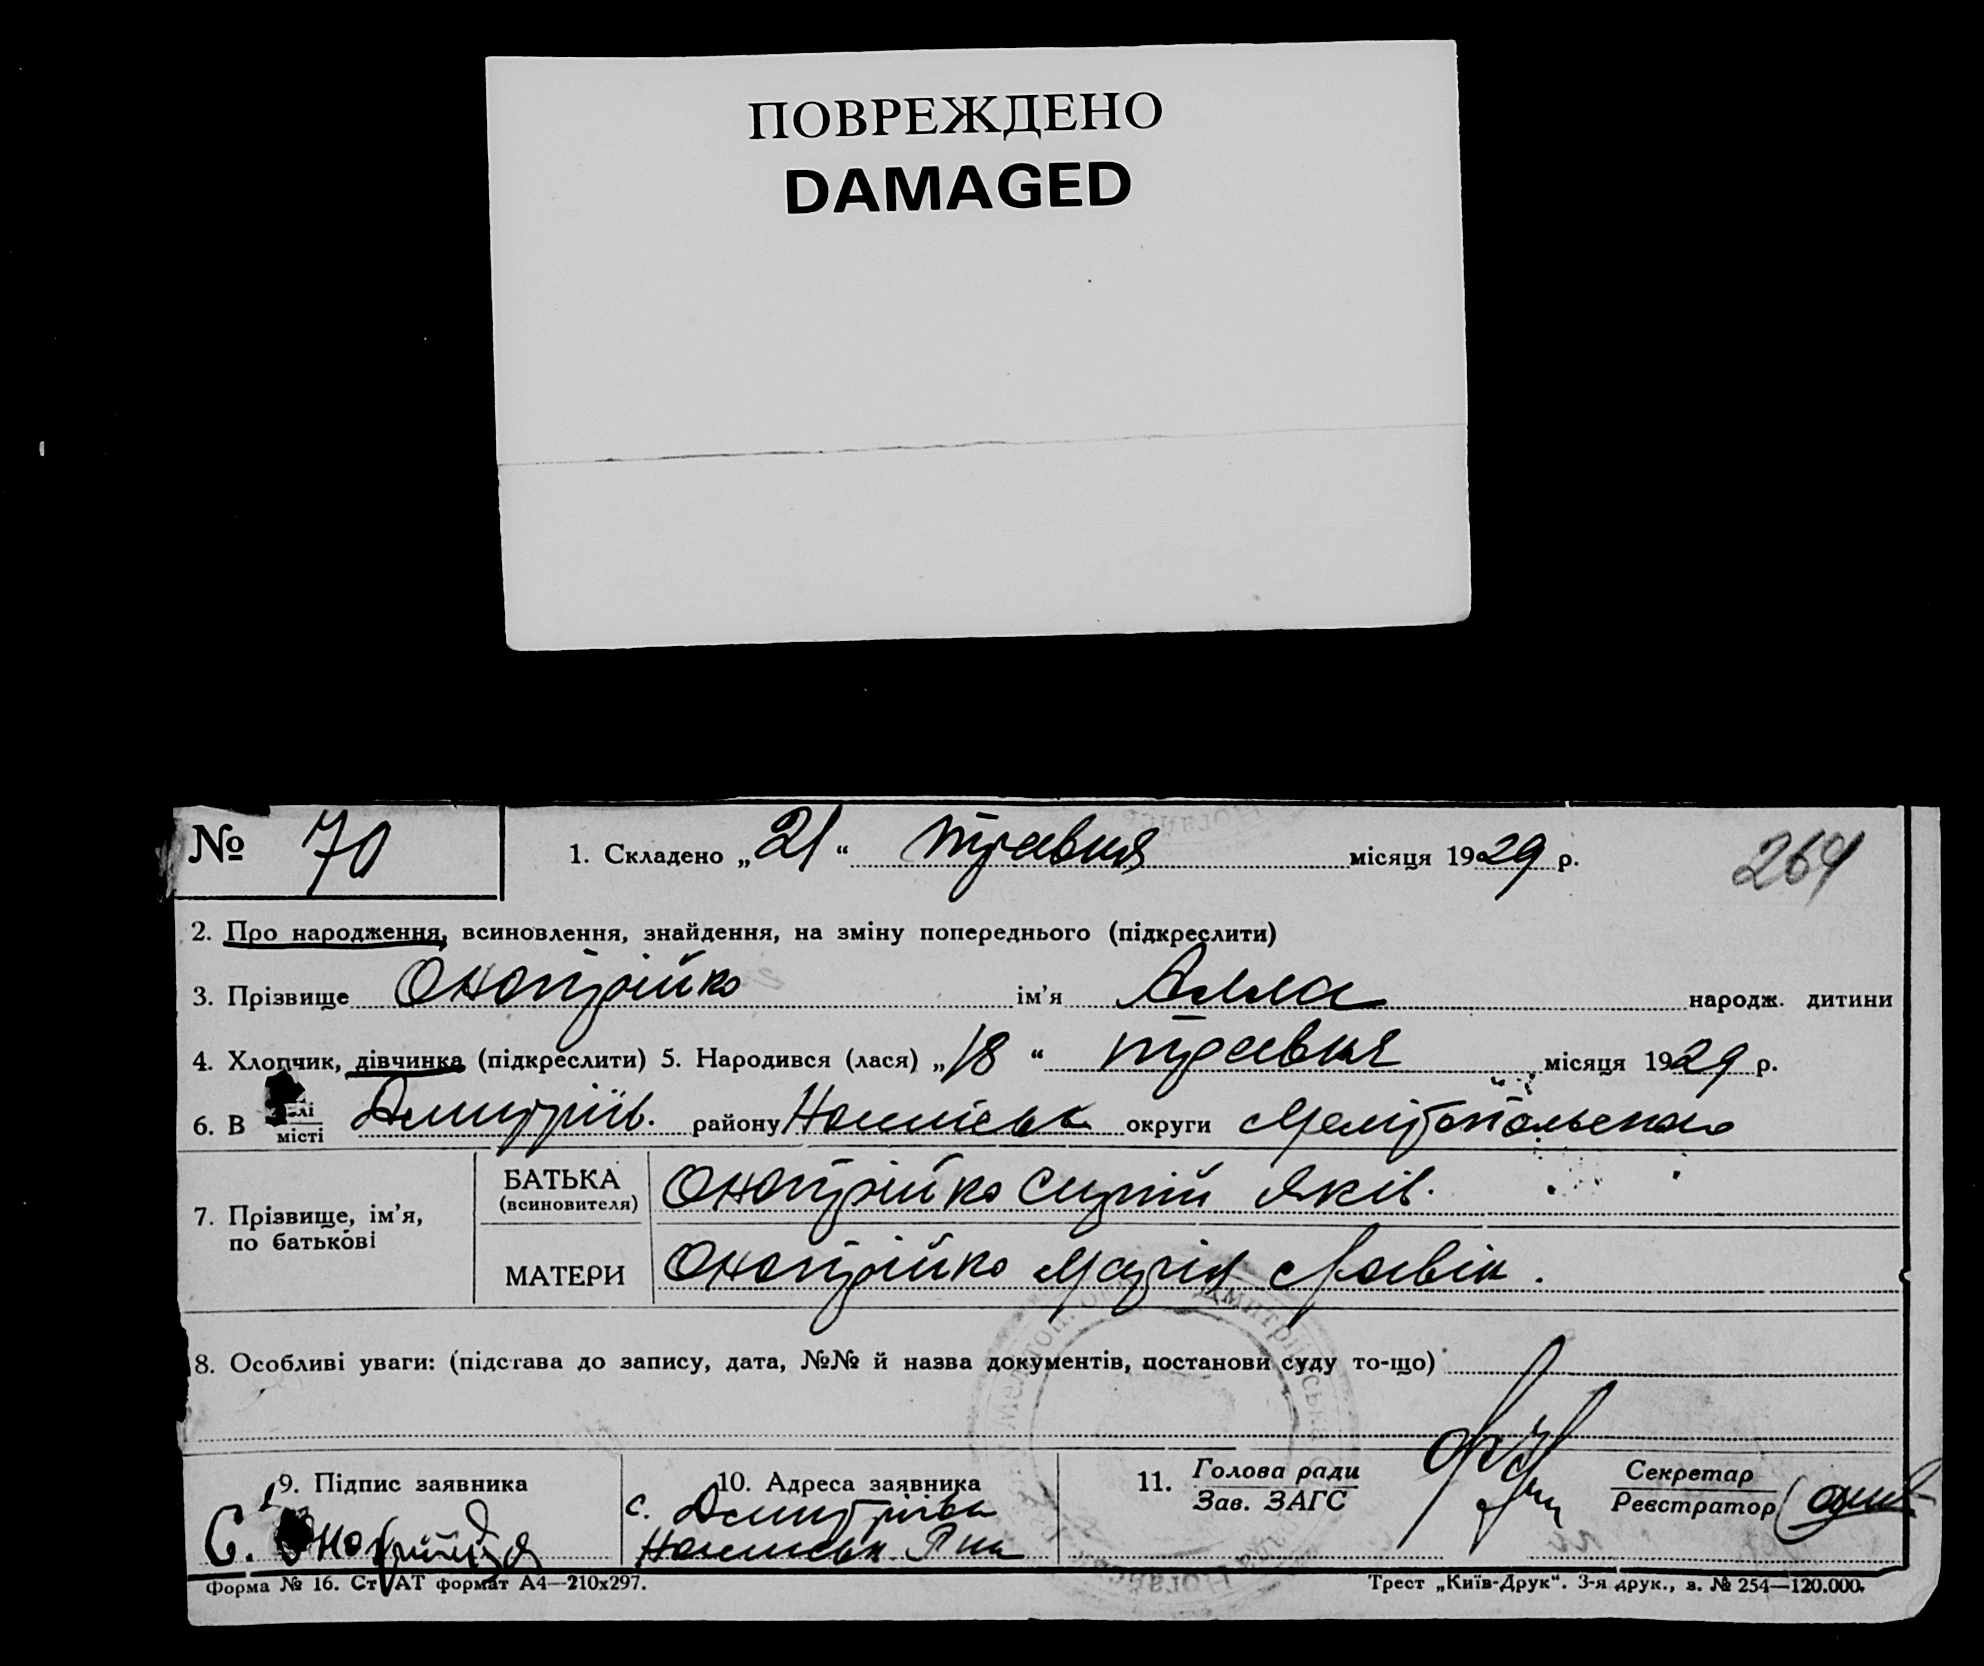 ПОВРЕЖДЕНО
DAMAGED
№ 70
1. Складено „21“ травня місяця 1929 р.
264
2. Про народження, всиновлення, знайдення, на зміну попереднього (підкреслити)
3. Прізвище Онопрійко ім’я Алла народж. дитини
4. Хлопчик, дівчинка (підкреслити) 5. Народився (лася) „18“ травня місяця 1929 р.
6. В селі місті Дмитрів. району Ногайськ округи Мелітопольської
7. Прізвище, ім’я, по батькові
БАТЬКА (всиновителя) Онопрійко Сергій Яків.
МАТЕРИ Онопрійко Марія
8. Особливі уваги: (підстава до запису, дата, №№ й назва документів, постанови суду то-що)
9. Підпис заявника
10. Адреса заявника
с. Дмитрівка
11. Голова ради
Зав. ЗАГС
Секретар
Реєстратор
Форма № 16. Ст АТ формат А4—210х297.
Трест „Київ-Друк“. 3-я друк., з. № 254—120.000.